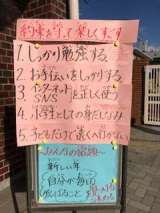 約束を守って楽しく学ぼう
1.しっかり勉強する
2.お手伝いをしっかりする
3.インターネット SNSを正しく使う
4.小学生としての身だしなみ
5.子どもだけで遠くへ行かない
みんなの宿題
新しい年
自分が